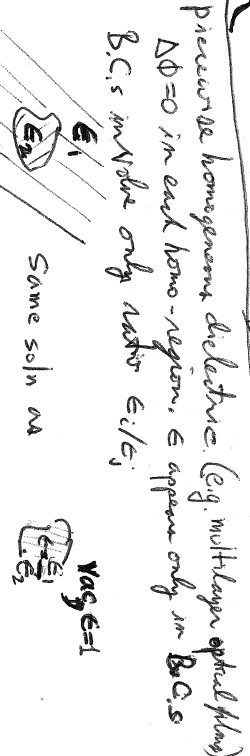 piecewise homogeneous dielectric. (e.g. multilayer optical films)
ΔΦ=0 in each homo-region. ϵ appears only in B.C.s
B.C.s involve only ratio ϵi/ϵj
ϵ1
ϵ2
same soln as
vac, ϵ=1
ϵ=ϵ1/ϵ2